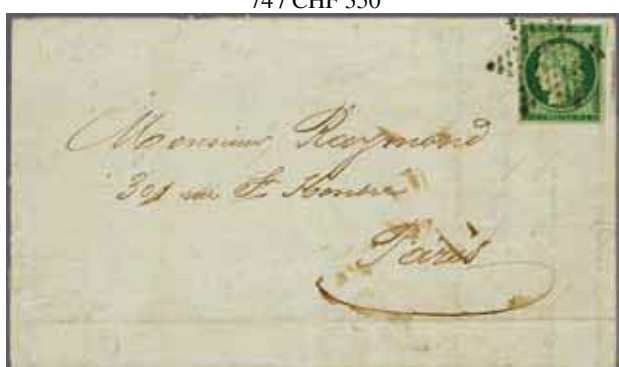 74 / CHF 350
Monsieur Raymond
301 rue St Honoré
Paris